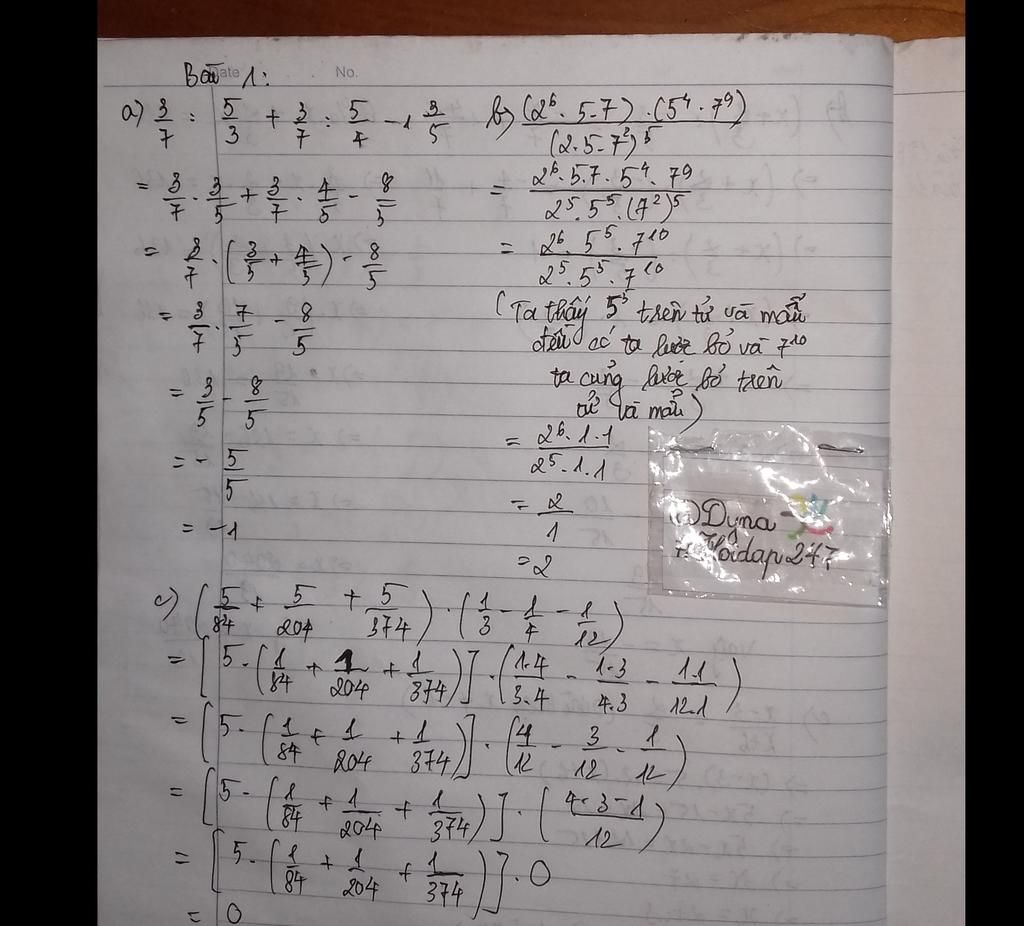 Bài 1:
Date No.
a) 3/7 : 5/3 + 3/7 : 5/4 - 1 3/5
= 3/7 . 3/5 + 3/7 . 4/5 - 8/5
= 3/7 . (3/5 + 4/5) - 8/5
= 3/7 . 7/5 - 8/5
= 3/5 - 8/5
= - 5/5
= -1
b) (2^6 . 5 . 7) . (5^4 . 7^9) / (2 . 5 . 7^2)^5
= 2^6 . 5 . 7 . 5^4 . 7^9 / 2^5 . 5^5 . (7^2)^5
= 2^6 . 5^5 . 7^10 / 2^5 . 5^5 . 7^10
(Ta thấy 5^5 trên tử và mẫu
đều có ta lược bỏ và 7^10
ta cũng lược bỏ trên
tử và mẫu)
= 2^6 . 1 . 1 / 2^5 . 1 . 1
= 2/1
= 2
Dyna
Hoidap247
c) (5/84 + 5/204 + 5/374) . (1/3 - 1/4 - 1/12)
= [5 . (1/84 + 1/204 + 1/374)] . (1.4/3.4 - 1.3/4.3 - 1.1/12.1)
= [5 . (1/84 + 1/204 + 1/374)] . (4/12 - 3/12 - 1/12)
= [5 . (1/84 + 1/204 + 1/374)] . (4 - 3 - 1/12)
= [5 . (1/84 + 1/204 + 1/374)] . 0
= 0